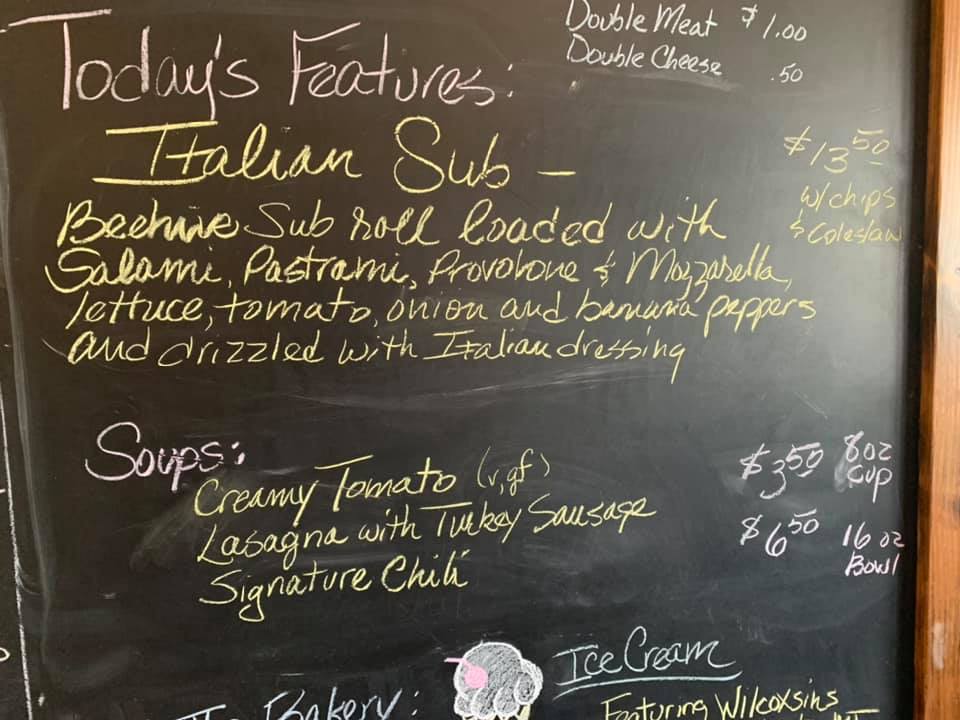 Double Meat $1.00
Double Cheese .50
Today's Features:
Italian Sub - $13.50
w/chips
& Coleslaw
Beehive Sub roll loaded with
Salami, Pastrami, Provolone & Mozzarella,
lettuce, tomato, onion and banana peppers
and drizzled with Italian dressing
Soups:
Creamy Tomato (v,gf) $3.50 8oz Cup
Lasagna with Turkey Sausage
Signature Chili $6.50 16 oz Bowl
Ice Cream
Bakery: Featuring Wilcoxsins